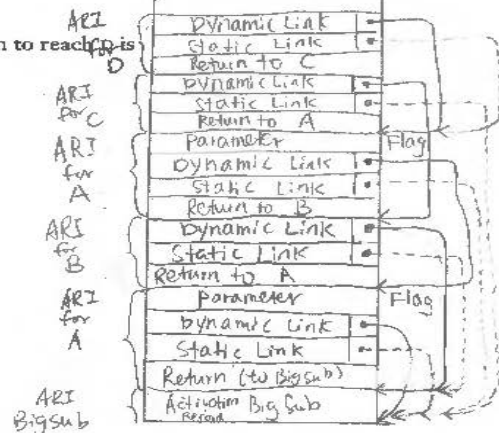 ARI
for
D
n to reach D is
Dynamic Link
Static Link
Return to C
ARI
for C
Dynamic Link
Static Link
Return to A
ARI
for
A
Parameter
Flag
Dynamic Link
Static Link
Return to B
ARI
for
B
Dynamic Link
Static Link
Return to A
ARI
for
A
Parameter
Flag
Dynamic Link
Static Link
Return (to BigSub)
ARI
Bigsub
Activation Big Sub
Record